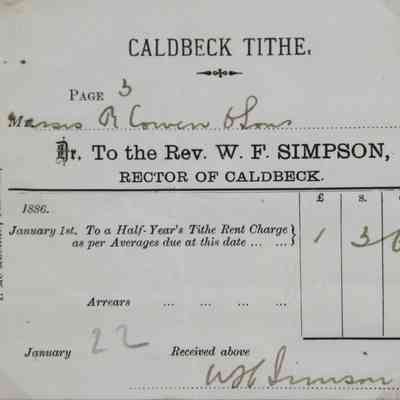 CALDBECK TITHE.
PAGE 3
Messrs R Cowen & Sons
Dr. To the Rev. W. F. SIMPSON,
RECTOR OF CALDBECK.
£ s.
1886.
January 1st. To a Half-Year's Tithe Rent Charge
as per Averages due at this date ... ... } 1 3
Arrears ... ... ... ...
January 22 Received above
W F Simpson